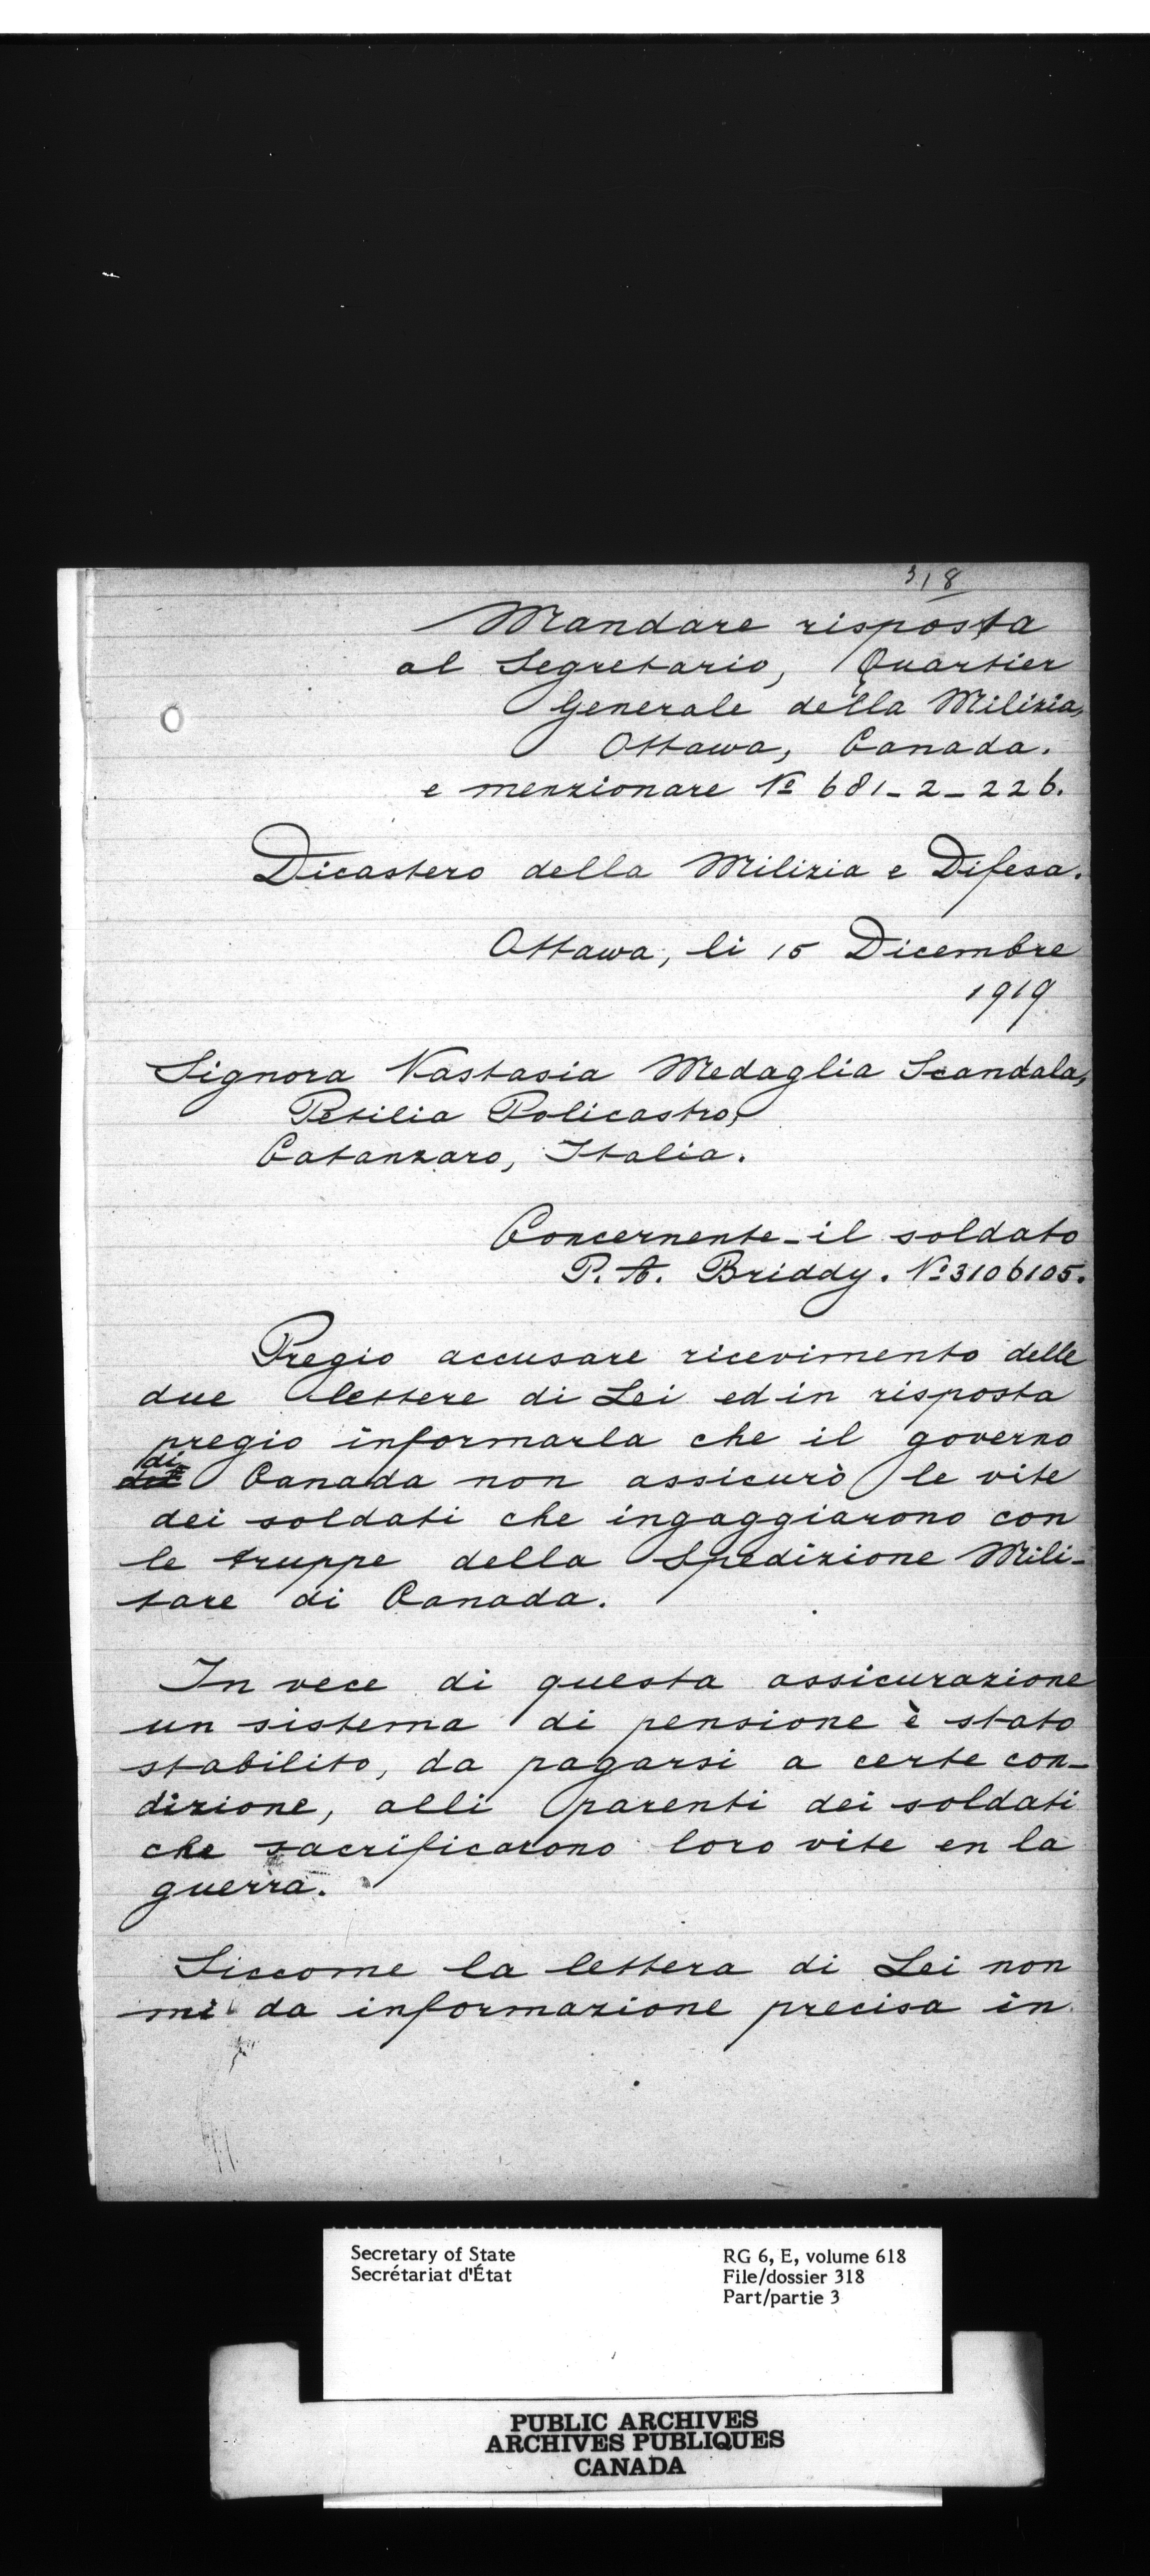 318
Mandare risposta
al Segretario, Quartier
Generale della Milizia,
Ottawa, Canada.
e menzionare Nº 681-2-226.
Dicastero della Milizia e Difesa.
Ottawa, li 15 Dicembre
1919
Signora Nastasia Medaglia Scandala,
Petilia Policastro,
Catanzaro, Italia.
Concernente-il soldato
P. A. Briddy. Nº 3106105.
Pregio accusare ricevimento delle
due lettere di Lei ed in risposta
pregio informarla che il governo
di
Canada non assicurò le vite
dei soldati che ingaggiarono con
le truppe della Spedizione Mili-
tare di Canada.
In vece di questa assicurazione
un sistema di pensione è stato
stabilito, da pagarsi a certe con-
dizione, alli parenti dei soldati
che sacrificarono loro vite en la
guerra.
Siccome la lettera di Lei non
mi da informazione precisa in
Secretary of State
Secrétariat d'État
RG 6, E, volume 618
File/dossier 318
Part/partie 3
PUBLIC ARCHIVES
ARCHIVES PUBLIQUES
CANADA